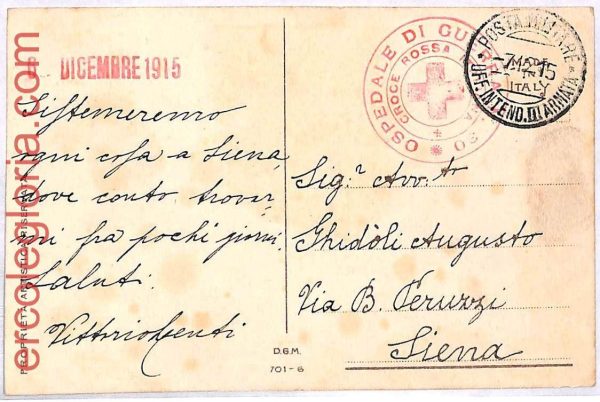 DICEMBRE 1915
Sistemeremo
ogni cosa a Siena,
dove conto trovar-
mi fra pochi giorni.
Saluti
Vittorio Centi
OSPEDALE DI GUERRA
CROCE ROSSA
POSTA MILITARE
-7.12.15
UFF. INTEND. III ARMATA
MADE
IN
ITALY
Sig.r Avv.to
Ghidòli Augusto
Via B. Peruzzi
Siena
D.G.M.
701-6
PROPRIETÀ ARTISTICA RISERVATA
ercolegloria.com